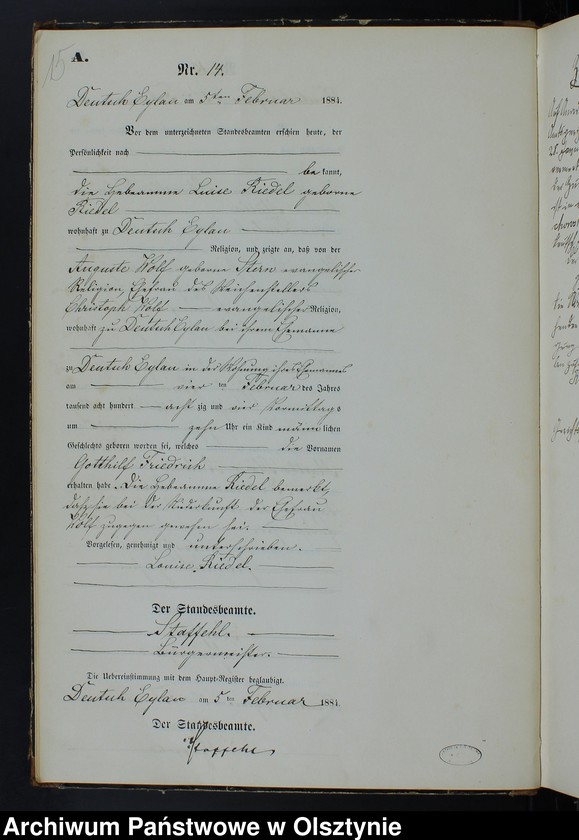 15
A.
Nr. 14.
Deutsch Eylau am 5ten Februar 1884.
Vor dem unterzeichneten Standesbeamten erschien heute, der
Persönlichkeit nach
be kannt,
die Hebeamme Luise Riedel geborne
Riedel
wohnhaft zu Deutsch Eylau
Religion, und zeigte an, daß von der
Auguste Wolf geborne Stern evangelischer
Religion, Ehefrau des Weichenstellers
Christoph Wolf evangelischer Religion,
wohnhaft zu Deutsch Eylau bei ihrem Ehemanne
zu Deutsch Eylau in der Wohnung ihres Ehemannes
am vier ten Februar des Jahres
tausend acht hundert acht zig und vier Vormittags
um zehn Uhr ein Kind männ lichen
Geschlechts geboren worden sei, welches die Vornamen
Gotthilf Friedrich
erhalten habe. Die Hebeamme Riedel bemerkt,
daß sie bei der Niederkunft der Ehefrau
Wolf zugegen gewesen sei.
Vorgelesen, genehmigt und unterschrieben.
Louise Riedel.
Der Standesbeamte.
Staffehl.
Bürgermeister.
Die Uebereinstimmung mit dem Haupt-Register beglaubigt.
Deutsch Eylau am 5ten Februar 1884.
Der Standesbeamte.
Staffehl
Archiwum Państwowe w Olsztynie